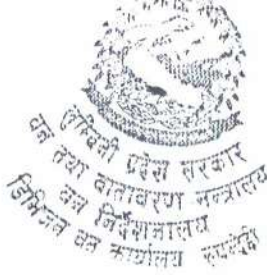 लुम्बिनी प्रदेश सरकार
वन तथा वातावरण मन्त्रालय
वन निर्देशनालय
डिभिजन वन कार्यालय रूपन्देही